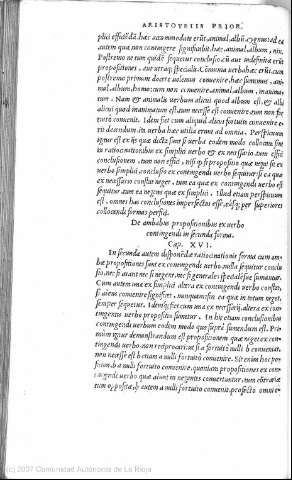 ARISTOTELIS PRIOR.
plici efficiẽdã. hæc accommodate erũt, animal, albũ, cygnus: ad ea
autem quæ non contingere significabit, hæc, animal, album, nix.
Postremo ne tum quidẽ sequetur conclusio cũ aut indefinita erũt
propositiones, aut utraq; specialis. Cõmunia uerba hæc erũt. cum
postremo primum docere uolemus conuenire, hæc sumimus, ani-
mal, album, homo: cum non conuenire, animal, album, inanima-
tum. Nam & animalis uerbum alicui quod album est, & albi
alicui quod inanimatum est, tum necesse est conuenire tum non for
tuito conuenire. Idem fiet cum aliquid alicui fortuito conuenire e-
rit docendum. ita uerba hæc utilia erunt ad omnia. Perspicuum
igitur est ex his quæ dicta sunt si uerba eodem modo collocata sint
in ratiocinationibus ex simplici uerbo & ex necessario, tum effici
conclusionem, tum non effici, nisi
uerba simplicis conclusio ex contingendi uerbo sequitur: si ea quæ
ex necessario constat neget, tum ea quæ ex contingendi uerbo est
sequitur, tum ea negans quæ ex simplici. Illud etiam perspicuum
est, omnes has conclusiones imperfectas esse, easq; per superiores
collocandi formas perfici.
De ambabus propositionibus ex uerbo
contingendi in secunda forma.
Cap. XVI.
In secunda autem disponẽdæ ratiocinationis forma cum am-
bæ propositiones sunt ex contingendi uerbo, nulla sequitur conclu
sio, nec si aiant nec si negent, nec si generales speciales sue sumantur.
Cum autem una ex simplici, altera ex contingendi uerbo constet,
si aiens conuenire significet, nunquam: sin ea quæ in totum neget,
semper sequetur. Idemq; fiet cum una ex necessario, altera ex con-
tingentis uerbo propositio sumetur. In his etiam conclusionibus
contingendi uerbum eodem modo quo supra sumendum est. Pri-
mum igitur demonstrandum est propositionem quæ neget ex con-
tingendi uerbo non reciprocari: ut si a fortuito nulli b conueniat,
non necesse est b etiam a nulli fortuito conuenire. Sit enim hoc po-
situm, b a nulli fortuito conuenire. quoniam propositiones ex con-
tingendi uerbo quæ aiunt in negantes conuertuntur, tum contrariæ
tum oppositæ, b autem a nulli fortuito conuenit, profecto omni e-
(c) 2007 Comunidad Autónoma de La Rioja